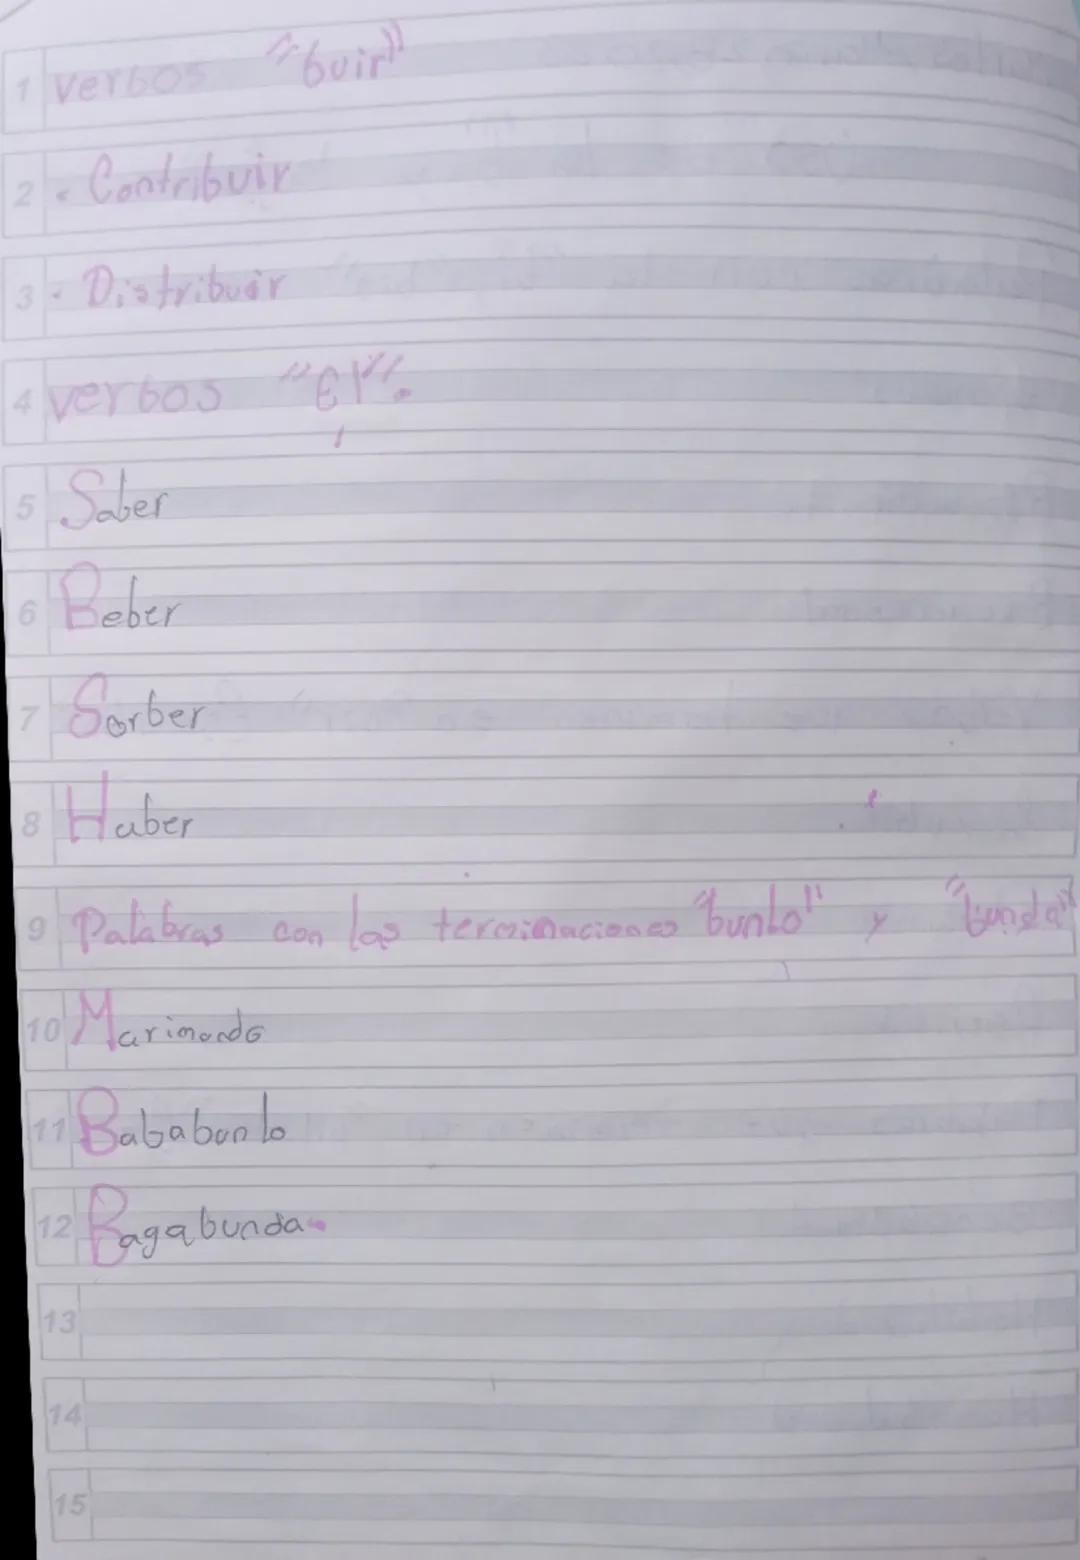 1 verbos "buir"
2 . Contribuir
3 . Distribuir
4 verbos "er".
5 Saber
6 Beber
7 Sorber
8 Haber
9 Palabras con las terminaciones "bundo" y "bunda"
10 Marimondo
11 Bababundo
12 Bagabunda
13
14
15